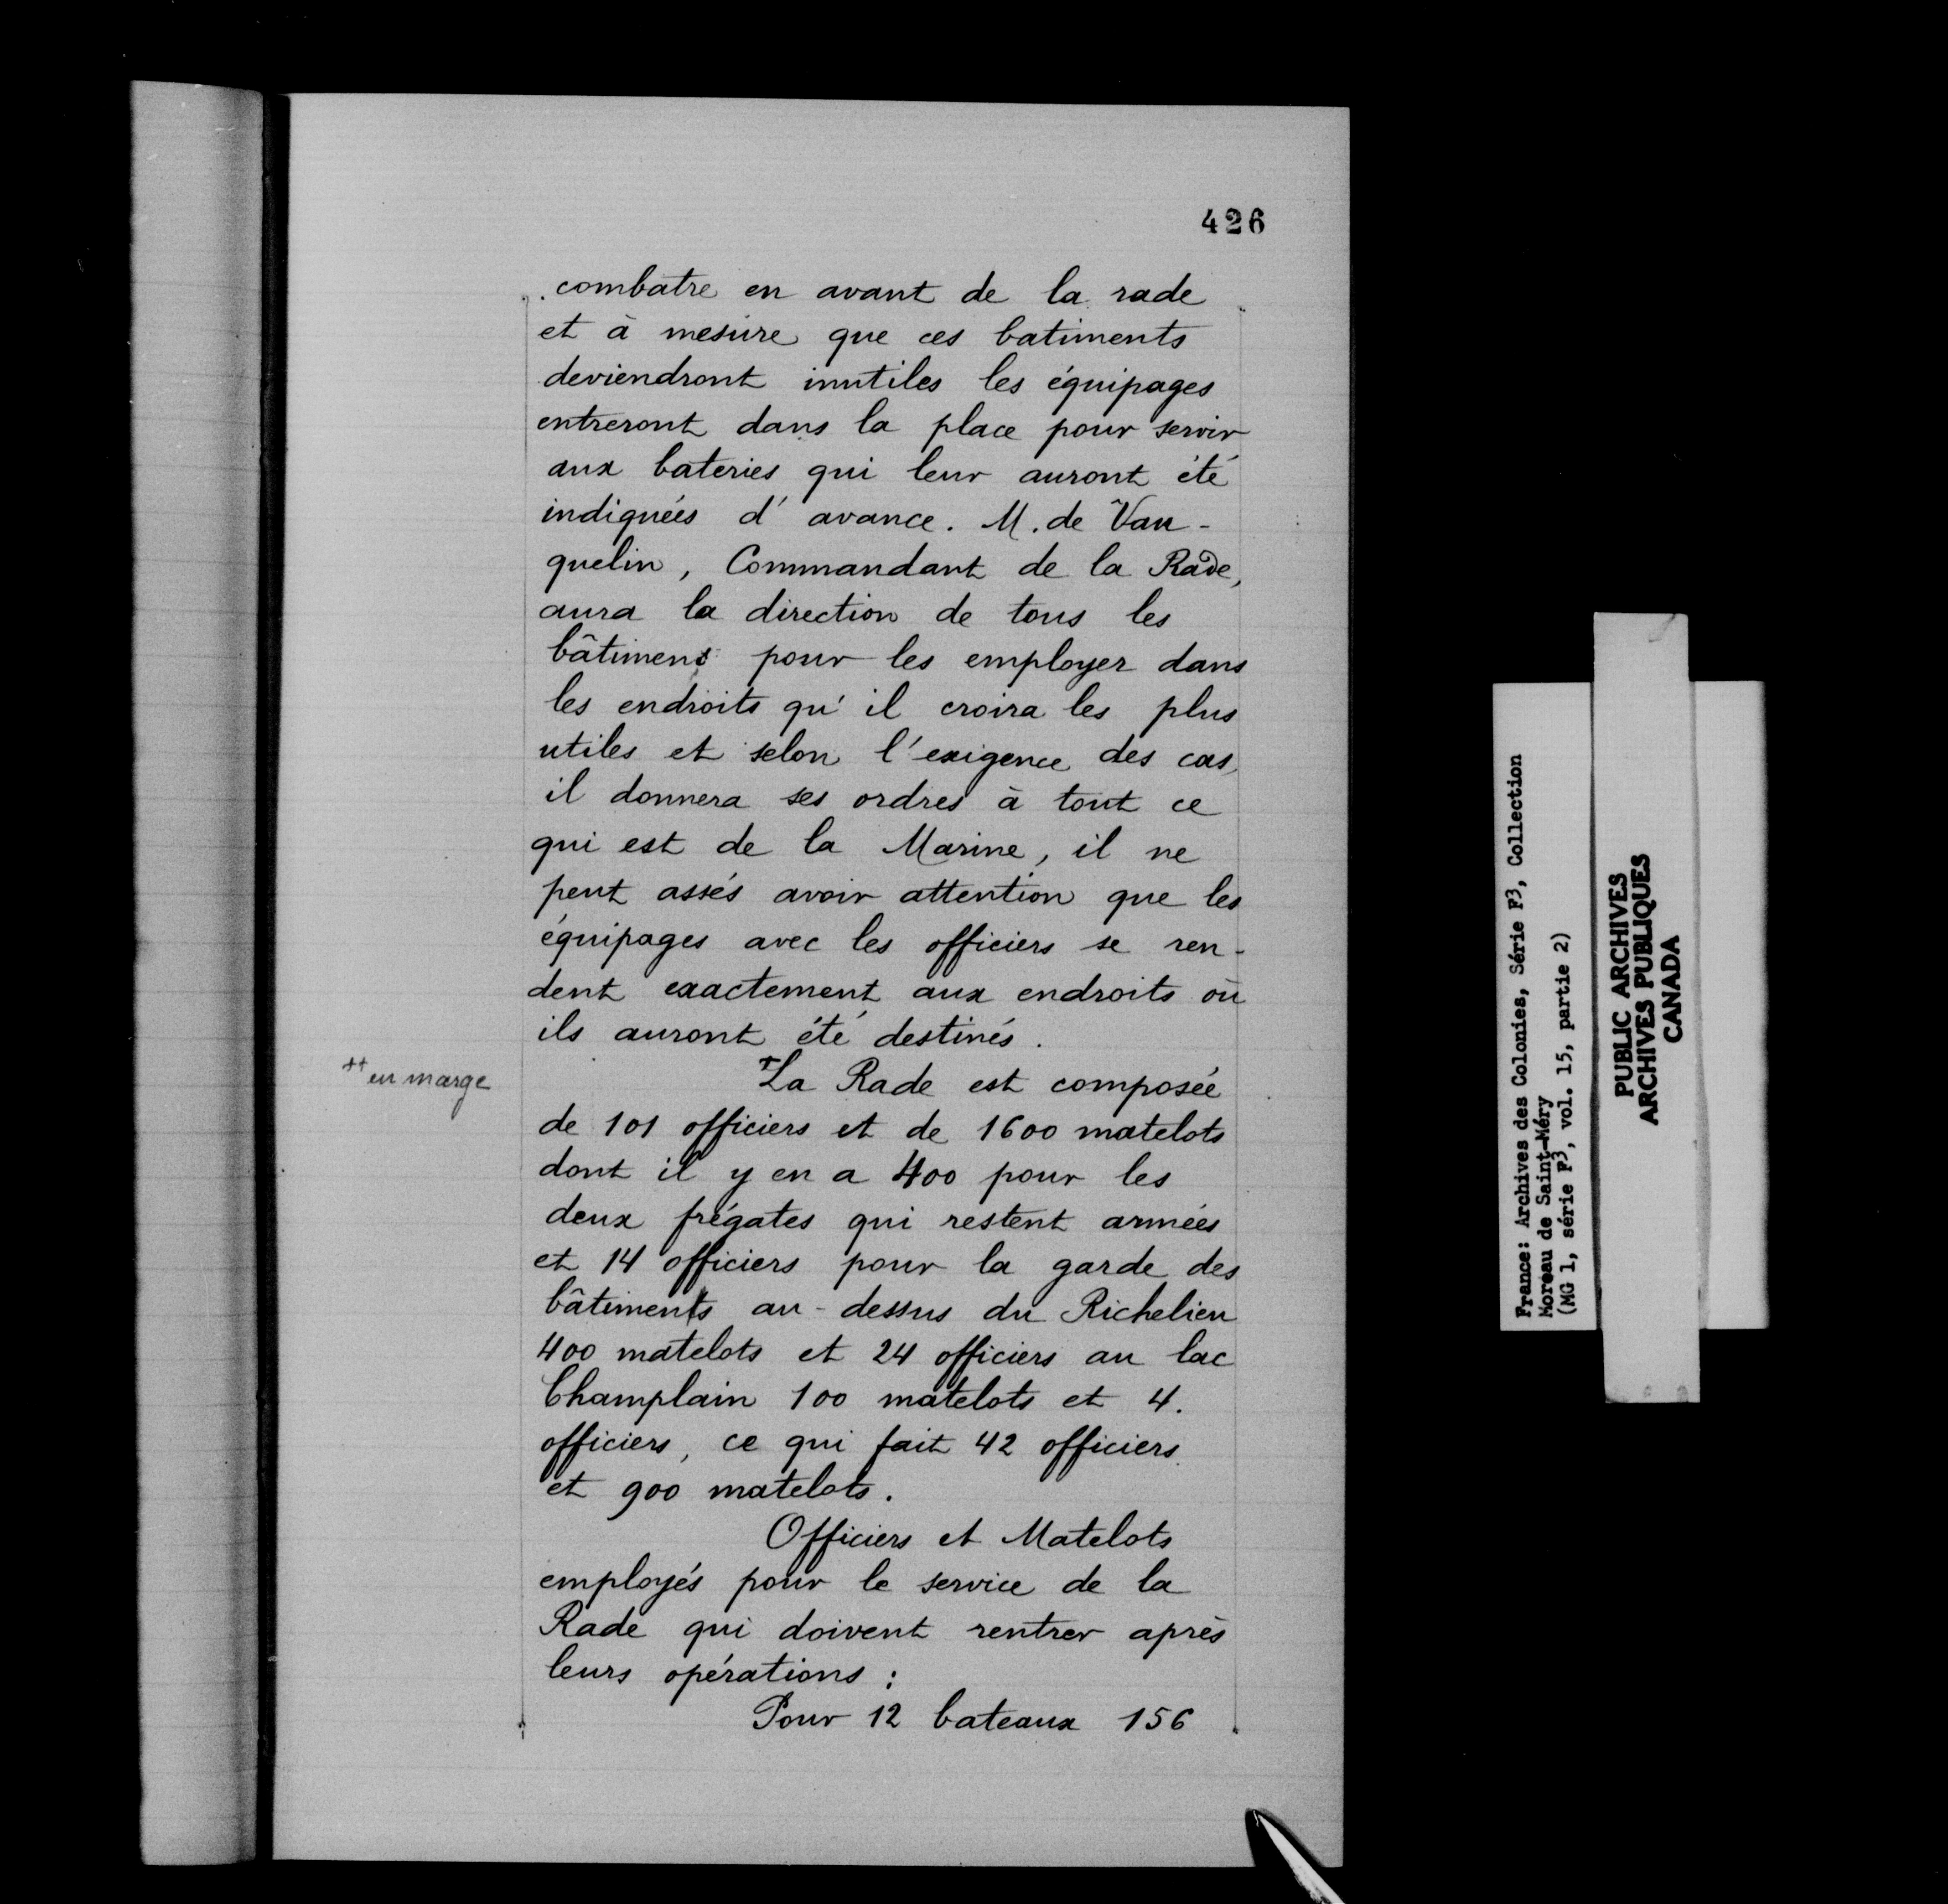 426
combatre en avant de la rade
et à mesure que ces batiments
deviendront inutiles les équipages
entreront dans la place pour servir
aux bateries qui leur auront été
indiquées d'avance. M. de Vau-
quelin, Commandant de la Rade,
aura la direction de tous les
bâtimens pour les employer dans
les endroits qu'il croira les plus
utiles et selon l'exigence des cas,
il donnera ses ordres à tout ce
qui est de la Marine, il ne
peut assés avoir attention que les
équipages avec les officiers se ren-
dent exactement aux endroits où
ils auront été destinés.
++ en marge
+La Rade est composée
de 101 officiers et de 1600 matelots
dont il y en a 400 pour les
deux frégates qui restent armées
et 14 officiers pour la garde des
bâtiments au-dessus du Richelieu
400 matelots et 24 officiers au lac
Champlain 100 matelots et 4.
officiers, ce qui fait 42 officiers
et 900 matelots.
Officiers et Matelots
employés pour le service de la
Rade qui doivent rentrer après
leurs opérations :
Pour 12 bateaux 156
France: Archives des Colonies, Série F3, Collection
Moreau de Saint-Méry
(MG 1, série F3, vol. 15, partie 2)
PUBLIC ARCHIVES
ARCHIVES PUBLIQUES
CANADA